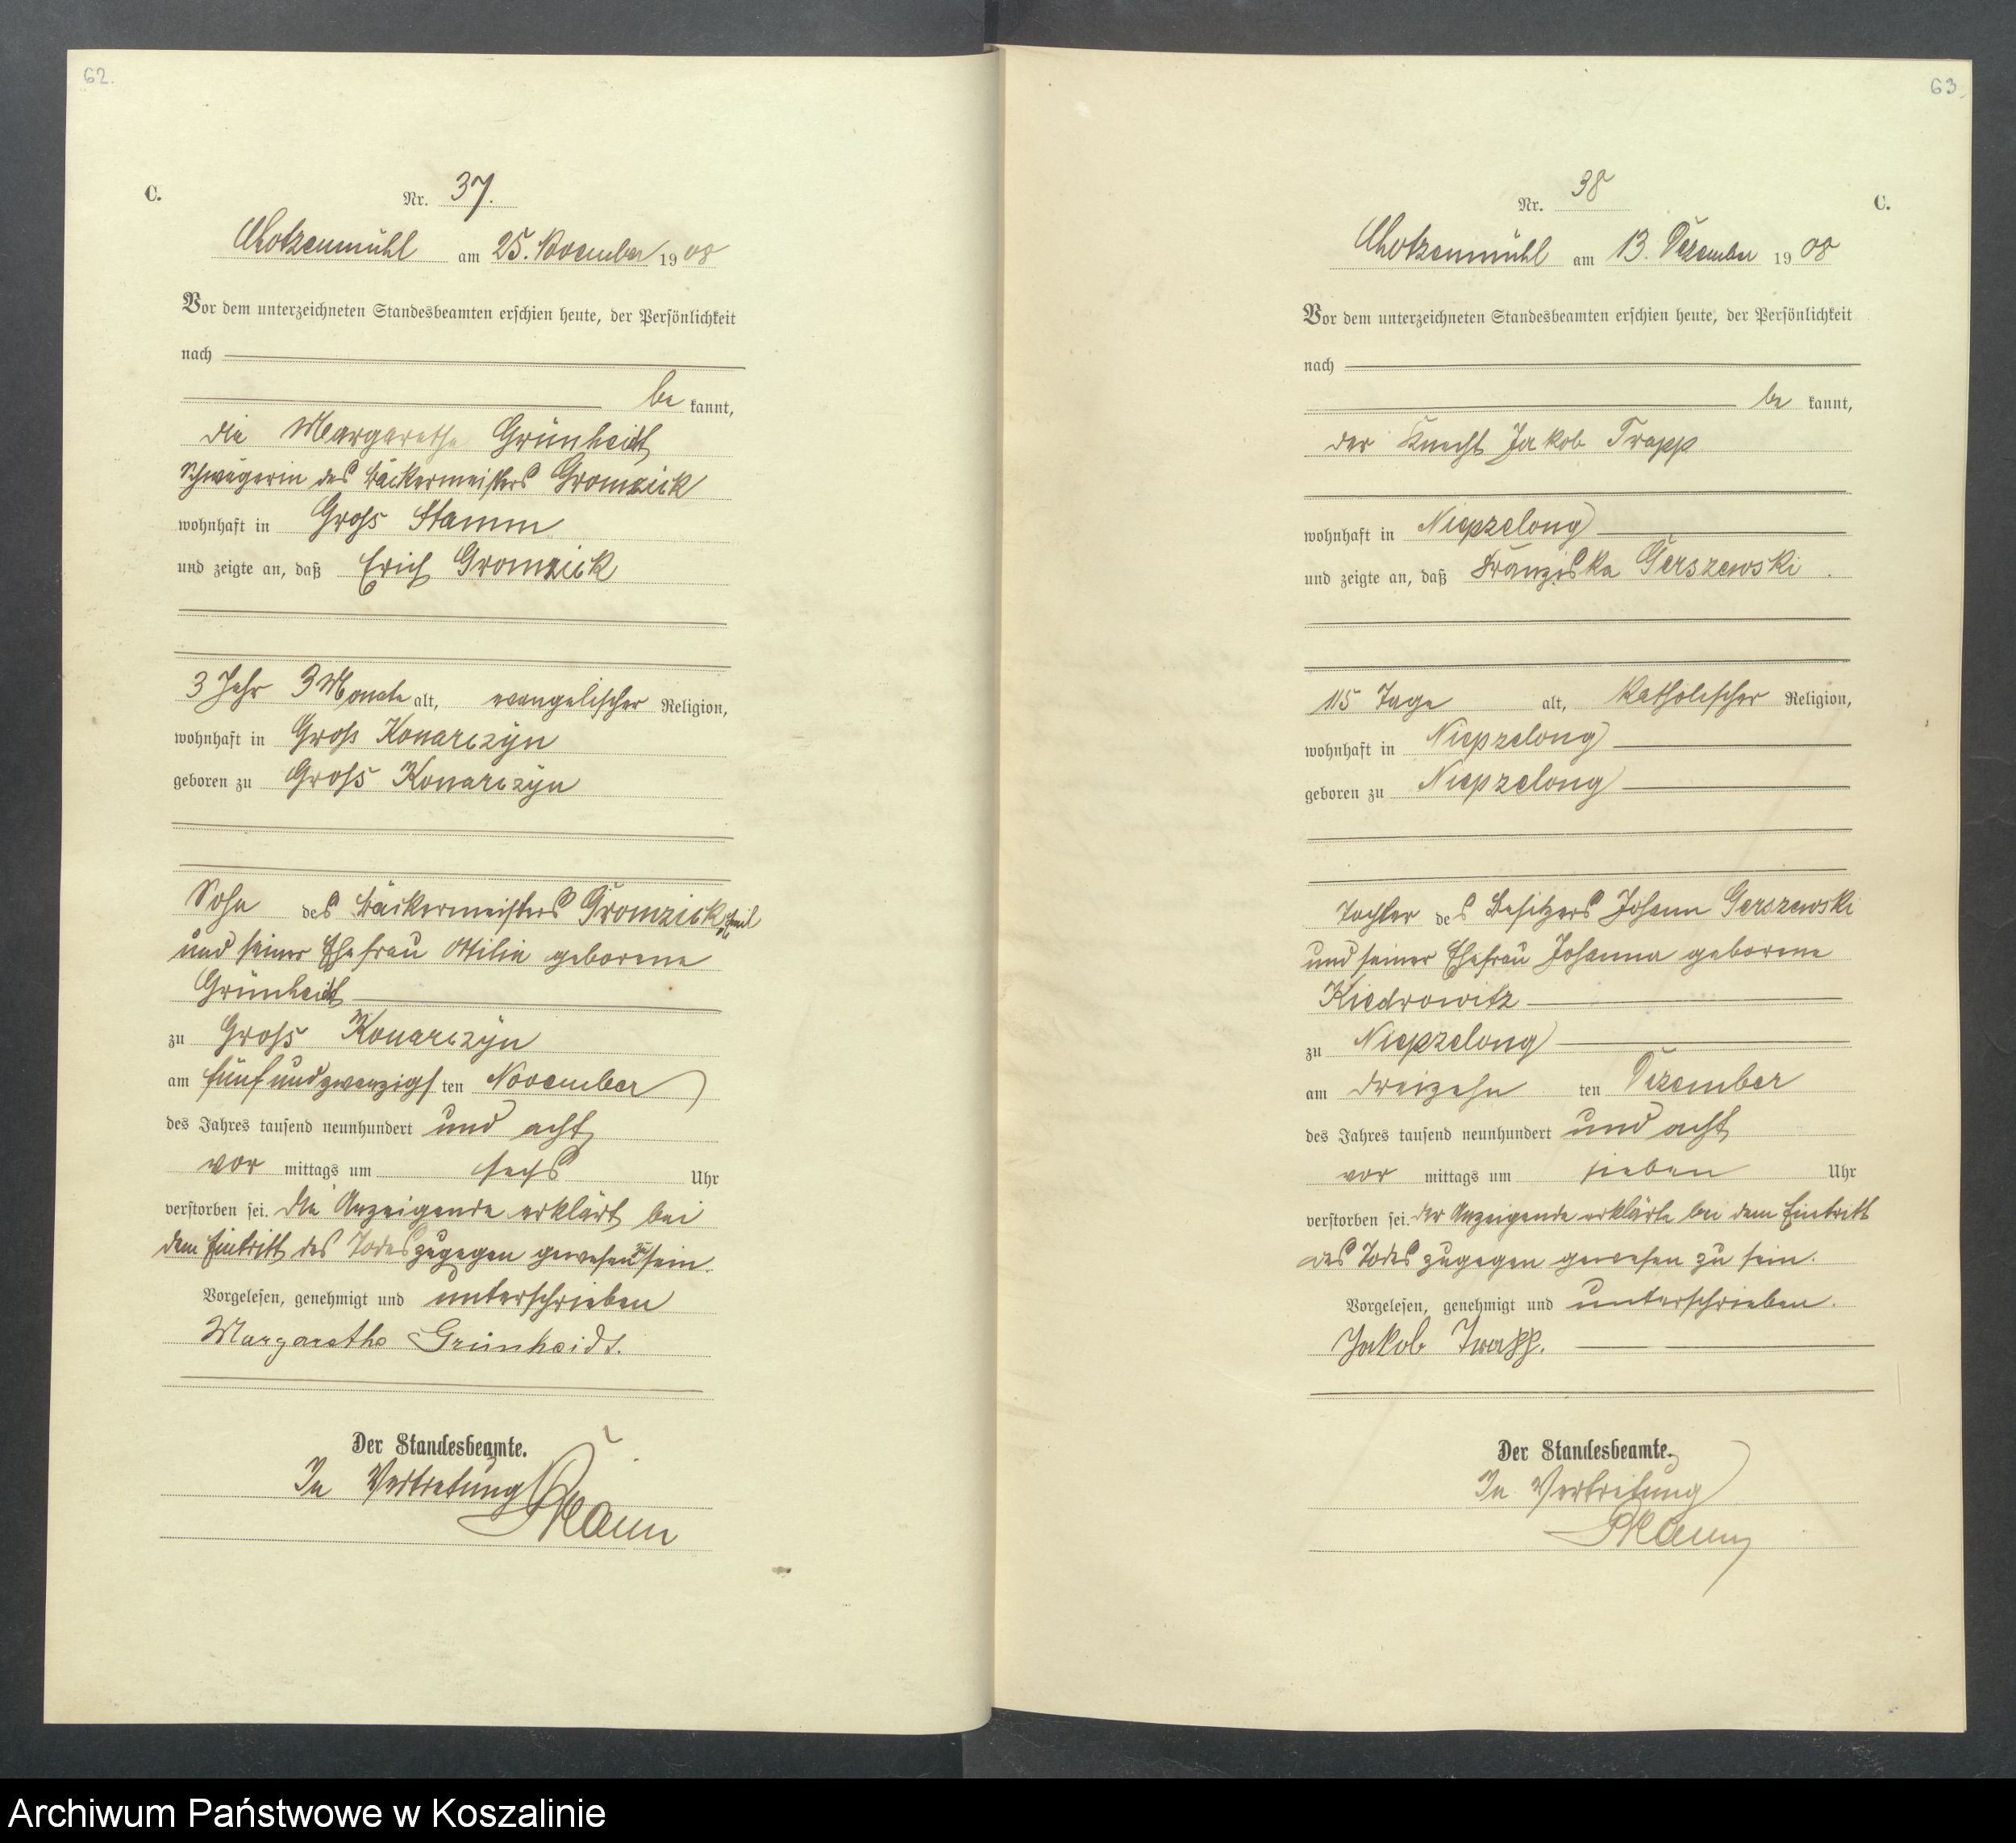 62.
C.
Nr. 37.
Chotzenmühl am 25. November 1908
Vor dem unterzeichneten Standesbeamten erschien heute, der Persönlichkeit
nach
be kannt,
die Margarethe Grünheidt
Schwägerin des Bäckermeisters Gromzick
wohnhaft in Groß Stamm
und zeigte an, daß Erich Gromzick
3 Jahr 3 Monate alt, evangelischer Religion,
wohnhaft in Groß Konarczyn
geboren zu Groß Konarczyn
Sohn des Bäckermeisters Gromzick Emil
und seiner Ehefrau Ottilie geborene
Grünheidt
zu Groß Konarczyn
am fünfundzwanzigsten November
des Jahres tausend neunhundert und acht
vor mittags um sechs Uhr
verstorben sei. Die Anzeigende erklärt bei
dem Eintritt des Todes zugegen gewesen zu sein.
Vorgelesen, genehmigt und unterschrieben
Margarethe Grünheidt.
Der Standesbeamte.
In Vertretung
63.
Nr. 38
C.
Chotzenmühl am 13. Dezember 1908
Vor dem unterzeichneten Standesbeamten erschien heute, der Persönlichkeit
nach
be kannt,
der Knecht Jakob Trapp
wohnhaft in Niepzelong
und zeigte an, daß Franziska Gerszewski
115 Tage alt, katholischer Religion,
wohnhaft in Niepzelong
geboren zu Niepzelong
Tochter des Besitzers Johann Gerszewski
und seiner Ehefrau Johanna geborene
Kiedrowitz
zu Niepzelong
am dreizehn ten Dezember
des Jahres tausend neunhundert und acht
vor mittags um sieben Uhr
verstorben sei. Der Anzeigende erklärte bei dem Eintritt
des Todes zugegen gewesen zu sein.
Vorgelesen, genehmigt und unterschrieben.
Jakob Trapp.
Der Standesbeamte.
In Vertretung
Archiwum Państwowe w Koszalinie